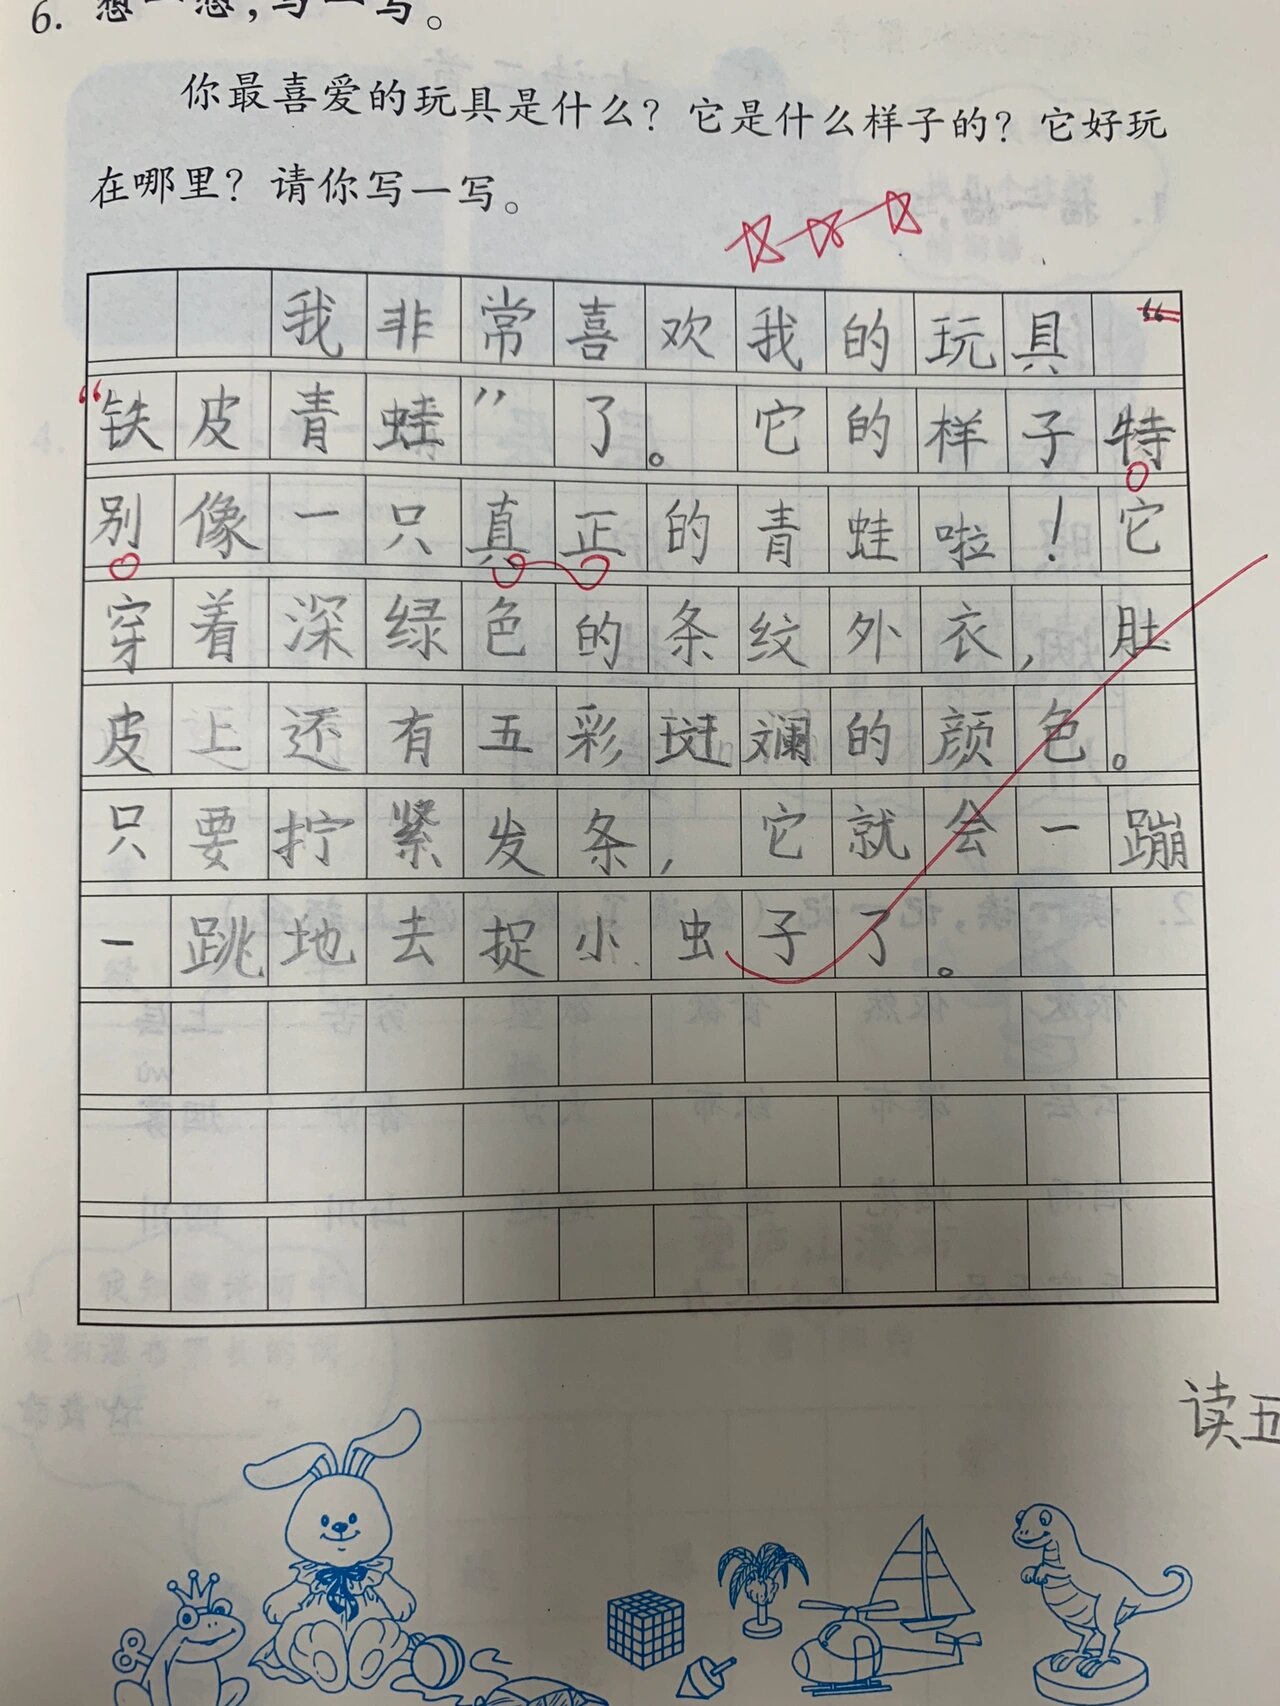 6. 想一想,写一写。
你最喜爱的玩具是什么?它是什么样子的?它好玩
在哪里?请你写一写。
我非常喜欢我的玩具
“铁皮青蛙”了。它的样子特
别像一只真正的青蛙啦!它
穿着深绿色的条纹外衣,肚
皮上还有五彩斑斓的颜色。
只要拧紧发条,它就会一蹦
一跳地去捉小虫子了。
读五